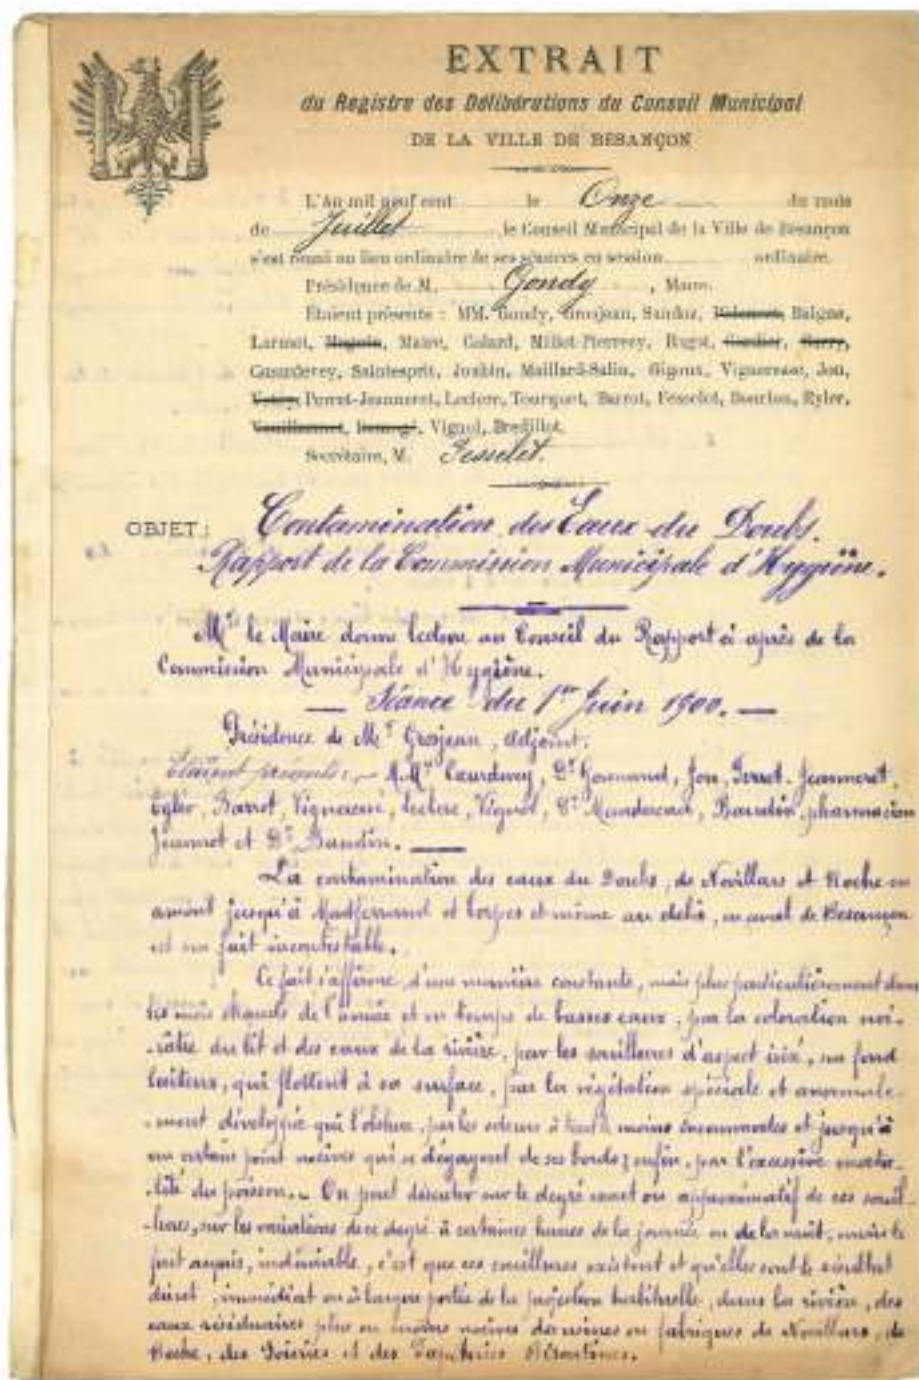 EXTRAIT
du Registre des Délibérations du Conseil Municipal
DE LA VILLE DE BESANÇON
L'An mil neuf cent le Onze du mois
de Juillet, le Conseil Municipal de la Ville de Besançon
s'est réuni au lieu ordinaire de ses séances en session ordinaire.
Présidence de M. Gondy, Maire.
Étaient présents : MM. Gondy, Grosjean, Sandoz, Baigue,
Larmet, Maire, Colard, Millot-Pierrecy, Rugot,
Saintesprit, Joubin, Maillard-Salin, Gigoux, Jou,
Perret-Jeanneret, Leclerc, Tourquet, Barrot, Fesselet, Bourlon, Eyler,
Vignol, Bredillot.
Secrétaire, M. Fesselet.
OBJET: Contamination des Eaux du Doubs.
Rapport de la Commission Municipale d'Hygiène.
Mr le Maire donne lecture au Conseil du Rapport ci après de la
Commission Municipale d'Hygiène.
— Séance du 1er Juin 1900. —
Présidence de Mr Grosjean, Adjoint.
Etaient présents: MMrs Dr Jou, Perret-Jeanneret,
Barrot, Leclerc, Vignol, Dr Baudin, pharmacien
et Dr Baudin.
La contamination des eaux du Doubs, de Novillars et Roche en
amont jusqu'à Montferrand et Torpes et même au delà, en aval de Besançon
est un fait incontestable.
Ce fait s'affirme d'une manière constante, mais plus particulièrement dans
les mois chauds de l'année et en temps de basses eaux, par la coloration noi-
-râtre du lit et des eaux de la rivière, par les souillures d'aspect irisé, au fond
laiteux, qui flottent à sa surface, par la végétation spéciale et anormale-
-ment développée qui l'obstrue, par les odeurs à tout le moins incommodes et jusqu'à
un certain point nocives qui se dégagent de ses bords; enfin, par l'excessive morta-
-lité du poisson. On peut discuter sur le degré exact ou approximatif de ces souil-
-lures, sur les variations de ce degré à certaines heures de la journée ou de la nuit, mais le
fait acquis, indéniable, c'est que ces souillures existent et qu'elles sont le résultat
direct, immédiat ou à longue portée de la projection habituelle, dans la rivière, des
eaux résiduaires plus ou moins nocives des usines ou fabriques de Novillars, de
Roche, des Soieries et des Tanneries Bisontines.